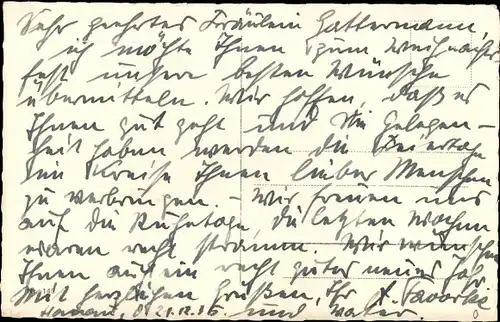 Sehr geehrtes Fräulein Gattermann,
ich möchte Ihnen zum Weihnachts-
fest unsere besten Wünsche
übermitteln. Wir hoffen, daß es
Ihnen gut geht und Sie Gelegen-
heit haben werden die Feiertage
im Kreise Ihnen lieber Menschen
zu verbringen. - Wir freuen uns
auf die Ruhetage, die letzten Wochen
waren recht stramm. Wir wünschen
Ihnen auch ein recht gutes neues Jahr.
Mit herzlichen Grüßen, Ihr
21.12.36 und